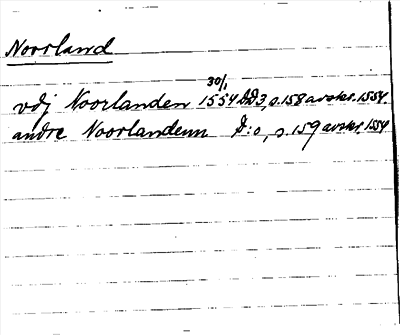 Noorland
vdj Noorlanden 30/1 1554 DD3, s.158 avskr. 1554.
andre Noorlandenn D:o, s.159 avskr. 1554